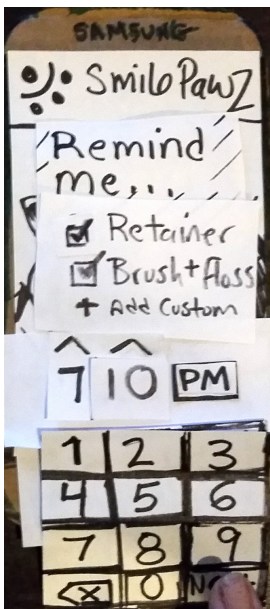 SAMSUNG
SmiloPawz
Remind
me...
Retainer
Brush + floss
+ Add Custom
7 10 PM
1 2 3
4 5 6
7 8 9
0